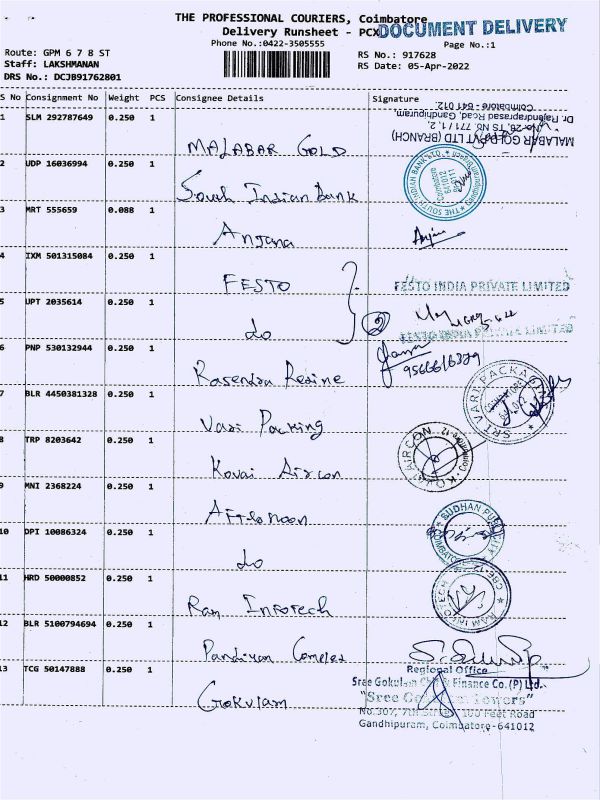 THE PROFESSIONAL COURIERS, Coimbatore
DOCUMENT DELIVERY
Delivery Runsheet - PCX
Phone No.:0422-3505555
Page No.:1
Route: GPM 6 7 8 ST
RS No.: 917628
Staff: LAKSHMANAN
RS Date: 05-Apr-2022
DRS No.: DCJB91762801
S No Consignment No Weight PCS Consignee Details Signature
1 SLM 292787649 0.250 1
MALABAR GOLD
MALABAR GOLD PVT LTD (BRANCH)
TS NO. 771/1, 2,
Dr. Rajendraprasad Road, Gandhipuram,
Coimbatore - 641 012
2 UDP 16036994 0.250 1
South Indian Bank
THE SOUTH INDIAN BANK LTD.
3 MRT 555659 0.088 1
Anjana
4 IXM 501315084 0.250 1
FESTO
FESTO INDIA PRIVATE LIMITED
5 UPT 2035614 0.250 1
do
2
FESTO INDIA PRIVATE LIMITED
6 PNP 530132944 0.250 1
9566616329
7 BLR 4450381328 0.250 1
Vari Packing
SRI VARI PACKAGING
8 TRP 8203642 0.250 1
Kovai Aircon
KOVAI AIRCON
9 MNI 2368224 0.250 1
Afternoon
10 DPI 10086324 0.250 1
do
11 HRD 50000852 0.250 1
Ram Infotech
RAM INFOTECH
12 BLR 5100794694 0.250 1
13 TCG 50147888 0.250 1
Gokulam
Regional Office
Sree Gokulam Chit & Finance Co.(P) Ltd.
"Sree Gokulam Towers"
No.307, 7th Street, 100 Feet Road
Gandhipuram, Coimbatore-641012